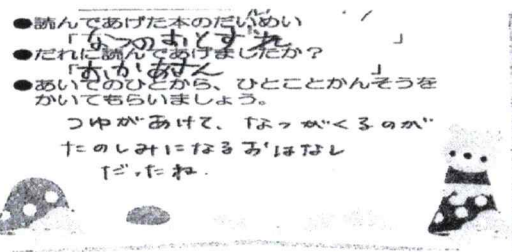 ●読んであげた本のだいめい
「なつのおとずれ」
●だれに読んであげましたか？
「おかあさん」
●あいてのひとから、ひとことかんそうを
かいてもらいましょう。
つゆがあけて、なつがくるのが
たのしみになるおはなし
だったね.